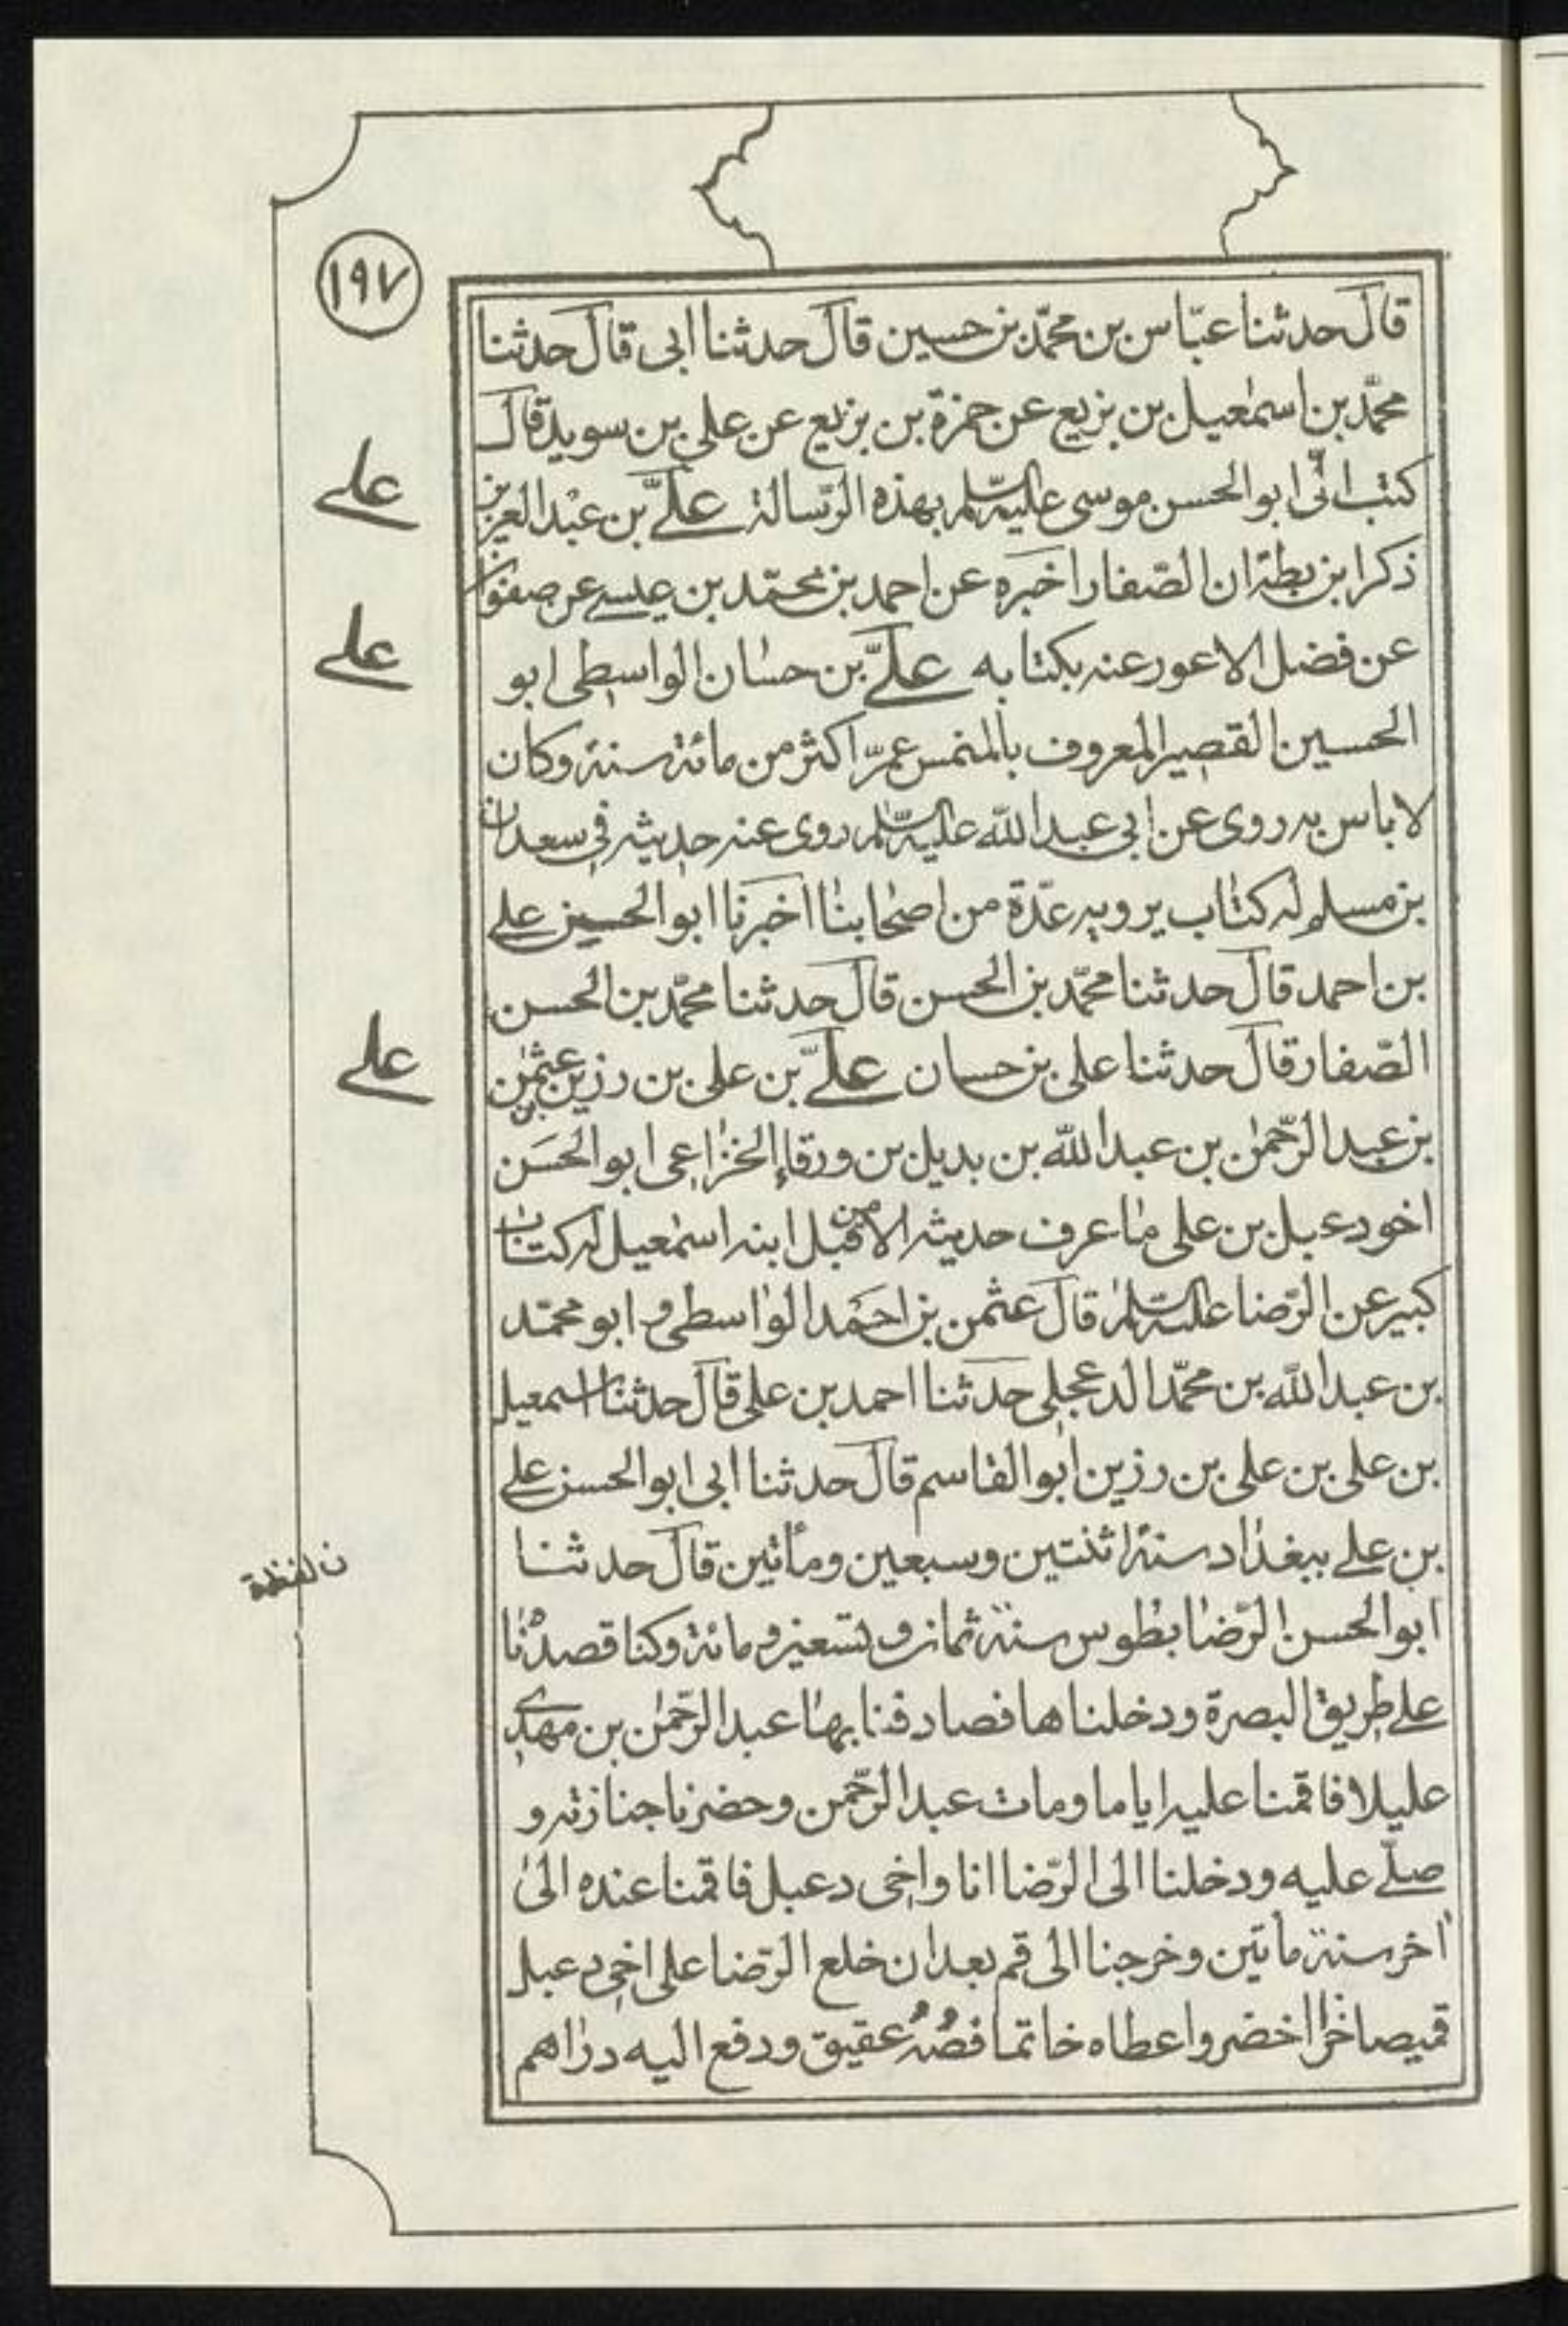 ١٩٧
قال حدثنا عباس بن محمد بن حسين قال حدثنا ابى قال حدثنا
محمد بن اسمعيل بن بزيع عن حمزة بن بزيع عن على بن سويد قال
كتب الىّ ابو الحسن موسى عليه السلم بهذه الرسالة علىّ بن عبد العزيز
على
ذكر ابن بطة ان الصفار اخبره عن احمد بن محمد بن عيسى عن صفوان
عن فضل الاعور عنه بكتابه علىّ بن حسان الواسطى ابو
على
الحسين القصير المعروف بالمنمس عمّر اكثر من مائة سنة وكان
لا باس به روى عن ابى عبد الله عليه السلم روى عنه حديثه فى سعدان
بن مسلم له كتاب يرويه عدّة من اصحابنا اخبرنا ابو الحسين على
بن احمد قال حدثنا محمد بن الحسن قال حدثنا محمد بن الحسن
الصفار قال حدثنا على بن حسان علىّ بن على بن رزين بن عثمن
على
بن عبد الرحمن بن عبد الله بن بديل بن ورقاء الخزاعى ابو الحسن
اخو دعبل بن على ما عرف حديثه الا من قبل ابنه اسمعيل له كتاب
كبير عن الرضا عليه السلم قال عثمن بن احمد الواسطى و ابو محمد
بن عبد الله بن محمد الدعجلى حدثنا احمد بن على قال حدثنا اسمعيل
بن على بن على بن رزين ابو القاسم قال حدثنا ابى ابو الحسن على
بن على ببغداد سنة اثنتين وسبعين ومأتين قال حدثنا
ابو الحسن الرضا بطوس سنة ثمان و تسعين و مائة وكنا قصدنا
على طريق البصرة ودخلناها فصادفنا بها عبد الرحمن بن مهدى
عليلا فاقمنا عليه اياما ومات عبد الرحمن وحضرنا جنازته و
صلّى عليه ودخلنا الى الرضا انا واخى دعبل فاقمنا عنده الى
اخر سنة مأتين وخرجنا الى قم بعد ان خلع الرضا على اخى دعبل
قميصا خزا اخضر واعطاه خاتما فصّه عقيق ودفع اليه دراهم